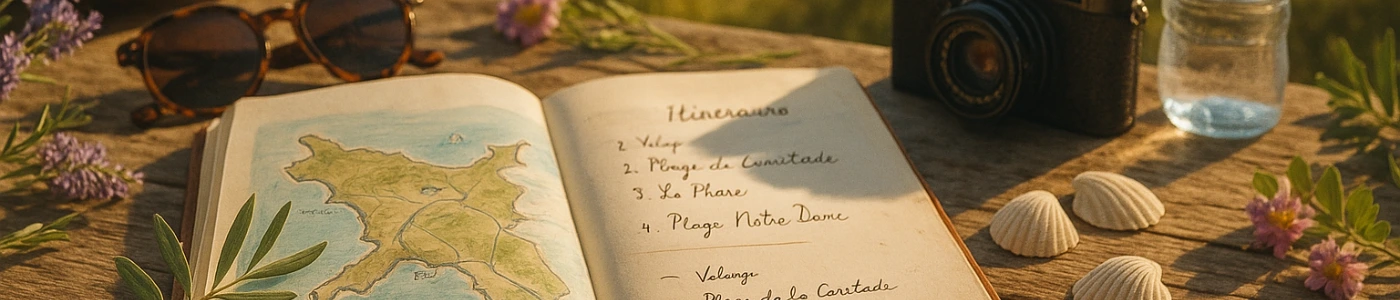 Itinerauro
2 Velap
2. Pbage de Comitade
3. Lo Phare
4. Plage Notre Dame
— Velange
Plage da lo Caretade